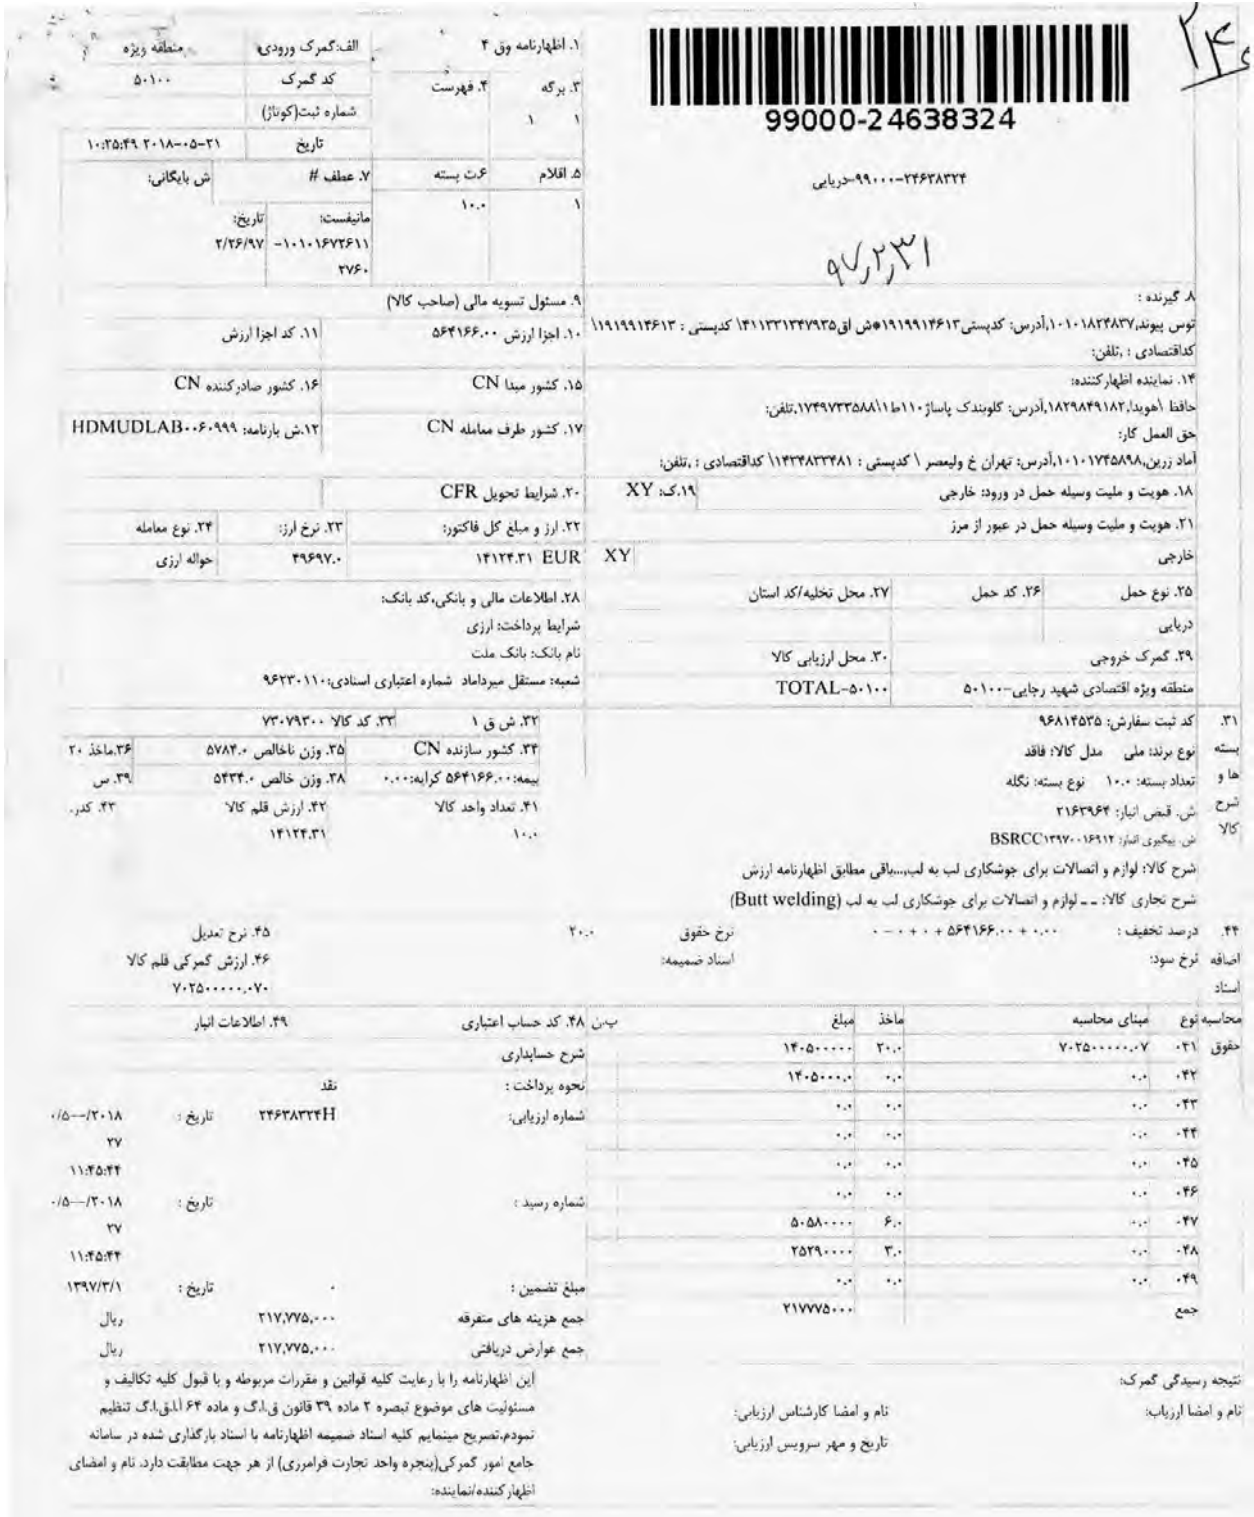 99000-24638324
۹۹۰۰۰-۲۴۶۳۸۳۲۴-دریایی
۹۷/۲/۳۱
۱. اظهارنامه وق ۴
الف:گمرک ورودی منطقه ویژه
کد گمرک ۵۰۱۰۰
شماره ثبت(کوتاژ)
تاریخ ۲۰۱۸-۰۵-۲۱ ۱۰:۲۵:۴۹
۳. برگه ۴. فهرست
۱ ۱ ۱
۵. اقلام ۶.ت بسته ۷. عطف # ش بایگانی:
۱ ۱۰.۰
مانیفست: تاریخ:
۱۰۱۰۱۶۷۲۶۱۱- ۲/۲۶/۹۷
۲۷۶۰
۸. گیرنده :
توس پیوند,۱۰۱۰۱۸۲۴۸۳۷,آدرس: کدپستی۱۹۱۹۹۱۴۶۱۳*ش اق۴۱۱۳۳۱۳۴۷۹۳۵\ کدپستی : ۱۹۱۹۹۱۴۶۱۳\
کداقتصادی : ,تلفن:
۹. مسئول تسویه مالی (صاحب کالا)
۱۰. اجزا ارزش ۵۶۴۱۶۶.۰۰ ۱۱. کد اجزا ارزش
۱۴. نماینده اظهارکننده:
حافظ \هویدا,۱۸۲۹۸۴۹۱۸۲,آدرس: گلوبندک پاساژ۱۱۰ط۱\۱۷۴۹۷۳۳۵۸۸,تلفن:
حق العمل کار:
آماد زرین,۱۰۱۰۱۷۴۵۸۹۸,آدرس: تهران خ ولیعصر \ کدپستی : ۱۴۳۴۸۳۳۴۸۱\ کداقتصادی : ,تلفن:
۱۵. کشور مبدا CN ۱۶. کشور صادرکننده CN
۱۷. کشور طرف معامله CN ۱۲.ش بارنامه: HDMUDLAB۰۰۶۰۹۹۹
۱۸. هویت و ملیت وسیله حمل در ورود: خارجی ۱۹.ک: XY ۲۰. شرایط تحویل CFR
۲۱. هویت و ملیت وسیله حمل در عبور از مرز
خارجی XY
۲۲. ارز و مبلغ کل فاکتور: ۲۳. نرخ ارز: ۲۴. نوع معامله
۱۴۱۲۴.۳۱ EUR ۴۹۶۹۷.۰ حواله ارزی
۲۵. نوع حمل ۲۶. کد حمل ۲۷. محل تخلیه/کد استان
دریایی
۲۸. اطلاعات مالی و بانکی،کد بانک:
شرایط پرداخت: ارزی
نام بانک: بانک ملت
شعبه: مستقل میرداماد شماره اعتباری اسنادی:۹۶۲۳۰۱۱۰
۲۹. گمرک خروجی ۳۰. محل ارزیابی کالا
منطقه ویژه اقتصادی شهید رجایی-۵۰۱۰۰ TOTAL-۵۰۱۰۰
۳۱. بسته ها و شرح کالا
کد ثبت سفارش: ۹۶۸۱۴۵۳۵
نوع برند: ملی مدل کالا: فاقد
تعداد بسته: ۱۰.۰ نوع بسته: نگله
ش. قبض انبار: ۲۱۶۳۹۶۴
ش. پیگیری انبار: BSRCC۱۳۹۷۰۰۱۶۹۱۲
شرح کالا: لوازم و اتصالات برای جوشکاری لب به لب،...باقی مطابق اظهارنامه ارزش
شرح تجاری کالا: ـ ـ لوازم و اتصالات برای جوشکاری لب به لب (Butt welding)
۳۲. ش ق ۱ ۳۳. کد کالا ۷۳۰۷۹۳۰۰
۳۴. کشور سازنده CN ۳۵. وزن ناخالص ۵۷۸۴.۰ ۳۶.ماخذ ۲۰
بیمه:۵۶۴۱۶۶.۰۰ کرایه:۰.۰۰ ۳۸. وزن خالص ۵۴۳۴.۰ ۳۹. س
۴۱. تعداد واحد کالا ۴۲. ارزش قلم کالا ۴۳. کدر.
۱۰.۰ ۱۴۱۲۴.۳۱
۴۴. اضافه اسناد
درصد تخفیف : ۰.۰۰ + ۵۶۴۱۶۶.۰۰ + ۰ + ۰ - ۰ نرخ حقوق ۲۰.۰
نرخ سود: اسناد ضمیمه:
۴۵. نرخ تعدیل
۴۶. ارزش گمرکی قلم کالا
۷۰۲۵۰۰۰۰۰.۰۷۰
محاسبه حقوق
نوع مبنای محاسبه ماخذ مبلغ پ.ن
۰۲۱ ۷۰۲۵۰۰۰۰۰.۰۷ ۲۰.۰ ۱۴۰۵۰۰۰۰۰
۰۴۲ ۰.۰ ۰.۰ ۱۴۰۵۰۰۰.۰
۰۴۳ ۰.۰ ۰.۰ ۰.۰
۰۴۴ ۰.۰ ۰.۰ ۰.۰
۰۴۵ ۰.۰ ۰.۰ ۰.۰
۰۴۶ ۰.۰ ۰.۰ ۰.۰
۰۴۷ ۰.۰ ۶.۰ ۵۰۵۸۰۰۰۰
۰۴۸ ۰.۰ ۳.۰ ۲۵۲۹۰۰۰۰
۰۴۹ ۰.۰ ۰.۰ ۰.۰
جمع ۲۱۷۷۷۵۰۰۰
۴۸. کد حساب اعتباری ۴۹. اطلاعات انبار
شرح حسابداری
نحوه پرداخت : نقد
شماره ارزیابی: ۲۴۶۳۸۳۲۴H تاریخ : ۲۰۱۸/--۰/۵
۲۷
۱۱:۴۵:۴۴
شماره رسید : تاریخ : ۲۰۱۸/--۰/۵
۲۷
۱۱:۴۵:۴۴
مبلغ تضمین : ۰ تاریخ : ۱۳۹۷/۳/۱
جمع هزینه های متفرقه ۲۱۷,۷۷۵,۰۰۰ ریال
جمع عوارض دریافتی ۲۱۷,۷۷۵,۰۰۰ ریال
نتیجه رسیدگی گمرک:
نام و امضا ارزیاب: نام و امضا کارشناس ارزیابی:
تاریخ و مهر سرویس ارزیابی:
این اظهارنامه را با رعایت کلیه قوانین و مقررات مربوطه و با قبول کلیه تکالیف و
مسئولیت های موضوع تبصره ۲ ماده ۳۹ قانون ق.ا.گ و ماده ۶۴ آ.ا.ق.ا.گ تنظیم
نمودم،تصریح مینمایم کلیه اسناد ضمیمه اظهارنامه با اسناد بارگذاری شده در سامانه
جامع امور گمرکی(پنجره واحد تجارت فرامرزی) از هر جهت مطابقت دارد. نام و امضای
اظهارکننده/نماینده: